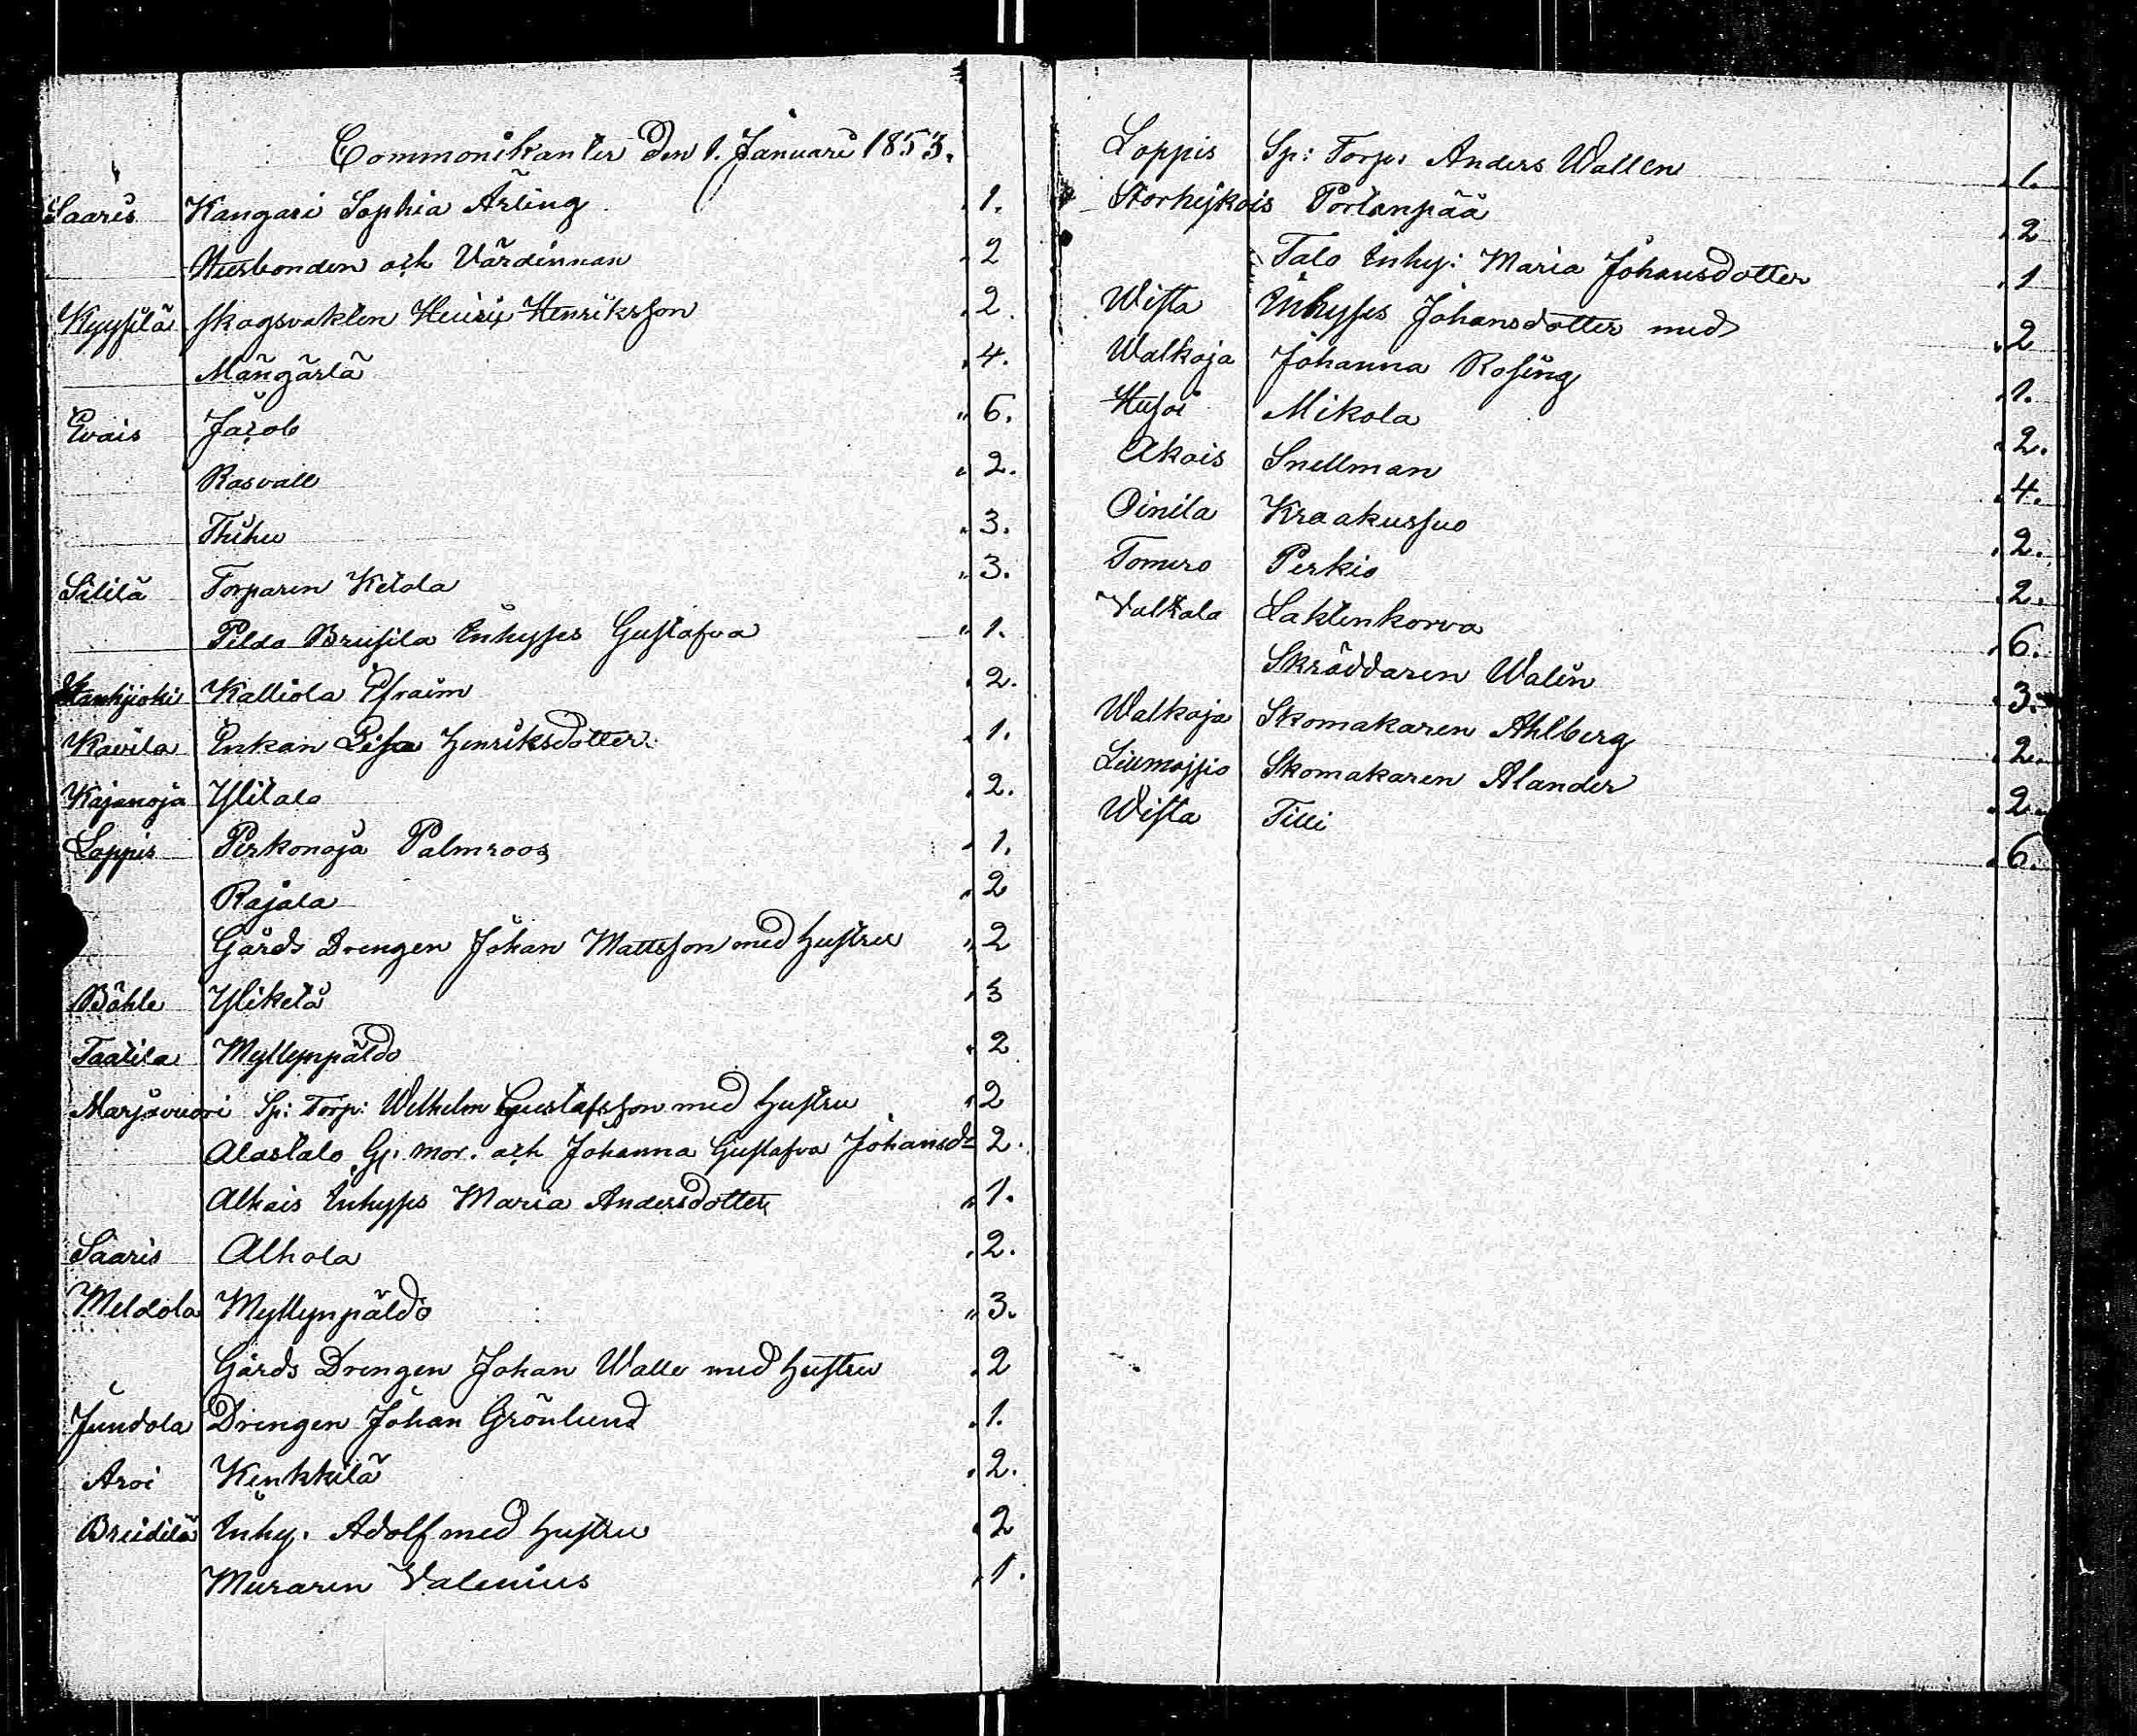 Commonikanter den 1. Januari 1853.
Saaris Kangari Sophia Arling 1.
Husbonden och Värdinnan 2
Kyysilä skogsvakten Henrik Henriksson 2.
Mängärlä 4.
Evais Jacob 6.
Rasvall 2.
Thihu 3.
Sililä Torparen Ketola 3.
Pildo Brusila Inhyses Gustafva 1.
Kankjoki Kalliola Efraim 2.
Kavila Enkan Lisa Henriksdotter 1.
Kajanoja Ylitalo 2.
Loppis Perkonoja Palmroos 1.
Rajala 2
Gårds Drengen Johan Mattsson med hustru 2
Böhle Ylikelä 3
Taatila Myllynpäldo 2
Marjavuori Sp: Torp: Wilhelm Gustafsson med hustru 2
Alastalo G. mor. och Johanna Gustafva Johansdr 2.
Alkais Inhyses Maria Andersdotter 1.
Saaris Alhola 2.
Meldola Myllynpäldo 3.
Gårds Drengen Johan Walle med hustru 2
Jundola Drengen Johan Grönlund 1.
Aroi Kenkkilä 2.
Breidilä Inhy. Adolf med hustru 2
Muraren Valenius 1.
Loppis Sp: Torp: Anders Wallen 1.
Storheikois Portanpää 2
Talo Inhy: Maria Johansdotter 1
Wista Inhyses Johansdotter med 2
Walkoja Johanna Rosing 1.
Husoi Mikola 2.
Akois Snellman 4.
Oinila Kraakursuo 2.
Tomero Perkio 2.
Valkola Laktenkorva 6.
Skräddaren Walin 3.
Walkoja Skomakaren Ahlberg 2.
Liumajsio Skomakaren Alander 2.
Wista Tilli 6.